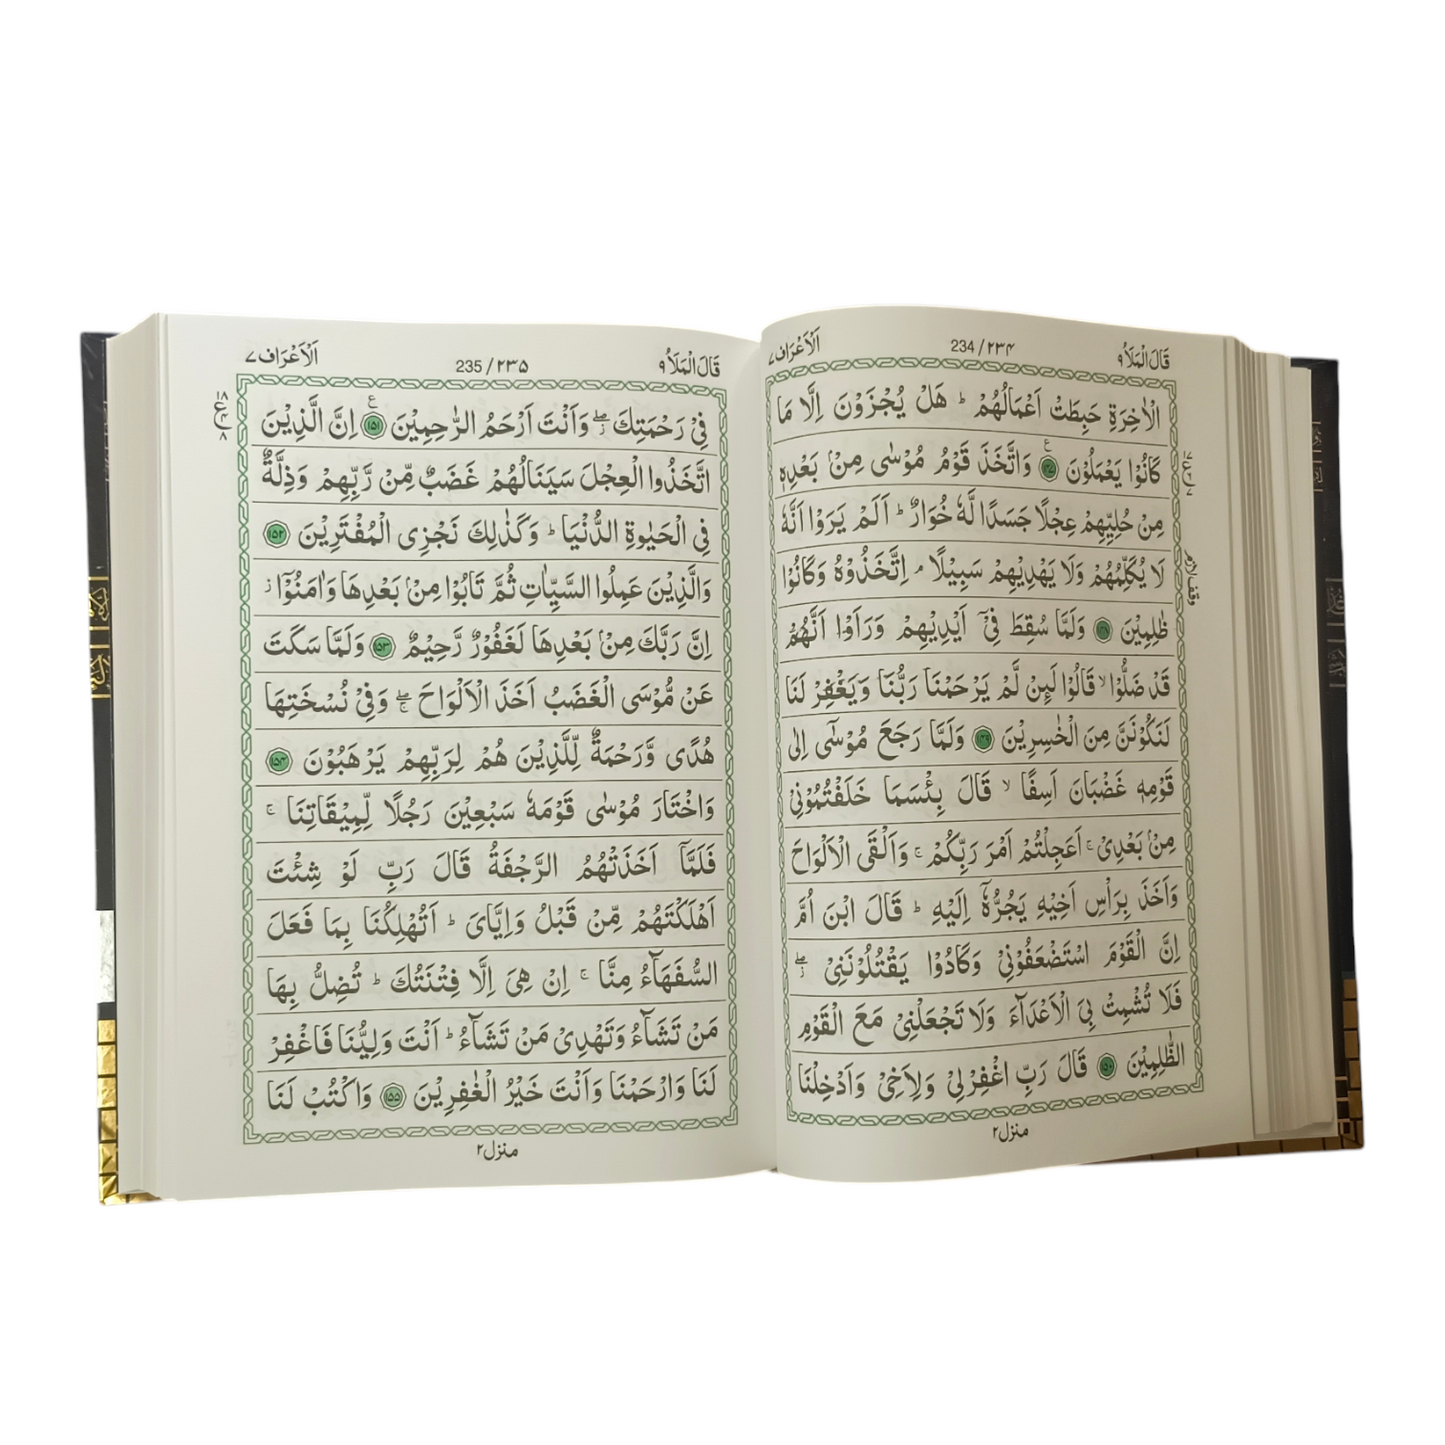 اَلْاَعْرَاف ٧
234 / ٢٣۴
قَالَ الْمَلَاُ ٩
الْاٰخِرَةِ حَبِطَتْ اَعْمَالُهُمْ ؕ هَلْ يُجْزَوْنَ اِلَّا مَا
كَانُوْا يَعْمَلُوْنَ ﴿١٤٧﴾ ع وَاتَّخَذَ قَوْمُ مُوْسٰى مِنْۢ بَعْدِهٖ
مِنْ حُلِيِّهِمْ عِجْلًا جَسَدًا لَّهٗ خُوَارٌ ؕ اَلَمْ يَرَوْا اَنَّهٗ
لَا يُكَلِّمُهُمْ وَلَا يَهْدِيْهِمْ سَبِيْلًا ۘ اِتَّخَذُوْهُ وَكَانُوْا
ظٰلِمِيْنَ ﴿١٤٨﴾ وَلَمَّا سُقِطَ فِيْۤ اَيْدِيْهِمْ وَرَاَوْا اَنَّهُمْ
قَدْ ضَلُّوْا ۙ قَالُوْا لَىِٕنْ لَّمْ يَرْحَمْنَا رَبُّنَا وَيَغْفِرْ لَنَا
لَنَكُوْنَنَّ مِنَ الْخٰسِرِيْنَ ﴿١٤٩﴾ وَلَمَّا رَجَعَ مُوْسٰۤى اِلٰى
قَوْمِهٖ غَضْبَانَ اَسِفًا ۙ قَالَ بِئْسَمَا خَلَفْتُمُوْنِيْ
مِنْۢ بَعْدِيْ ۚ اَعَجِلْتُمْ اَمْرَ رَبِّكُمْ ۚ وَاَلْقَى الْاَلْوَاحَ
وَاَخَذَ بِرَاْسِ اَخِيْهِ يَجُرُّهٗۤ اِلَيْهِ ؕ قَالَ ابْنَ اُمَّ
اِنَّ الْقَوْمَ اسْتَضْعَفُوْنِيْ وَكَادُوْا يَقْتُلُوْنَنِيْ ۖ ز
فَلَا تُشْمِتْ بِيَ الْاَعْدَآءَ وَلَا تَجْعَلْنِيْ مَعَ الْقَوْمِ
الظّٰلِمِيْنَ ﴿١٥٠﴾ قَالَ رَبِّ اغْفِرْلِيْ وَلِاَخِيْ وَاَدْخِلْنَا
منزل ٢
اَلْاَعْرَاف ٧
235 / ٢٣۵
قَالَ الْمَلَاُ ٩
فِيْ رَحْمَتِكَ ۖ ز وَاَنْتَ اَرْحَمُ الرّٰحِمِيْنَ ﴿١٥١﴾ ع اِنَّ الَّذِيْنَ
اتَّخَذُوا الْعِجْلَ سَيَنَالُهُمْ غَضَبٌ مِّنْ رَّبِّهِمْ وَذِلَّةٌ
فِى الْحَيٰوةِ الدُّنْيَا ؕ وَكَذٰلِكَ نَجْزِى الْمُفْتَرِيْنَ ﴿١٥٢﴾
وَالَّذِيْنَ عَمِلُوا السَّيِّاٰتِ ثُمَّ تَابُوْا مِنْۢ بَعْدِهَا وَاٰمَنُوْۤا ز
اِنَّ رَبَّكَ مِنْۢ بَعْدِهَا لَغَفُوْرٌ رَّحِيْمٌ ﴿١٥٣﴾ وَلَمَّا سَكَتَ
عَنْ مُّوْسَى الْغَضَبُ اَخَذَ الْاَلْوَاحَ ۖۚ وَفِيْ نُسْخَتِهَا
هُدًى وَّرَحْمَةٌ لِّلَّذِيْنَ هُمْ لِرَبِّهِمْ يَرْهَبُوْنَ ﴿١٥٤﴾
وَاخْتَارَ مُوْسٰى قَوْمَهٗ سَبْعِيْنَ رَجُلًا لِّمِيْقَاتِنَا ۚ
فَلَمَّاۤ اَخَذَتْهُمُ الرَّجْفَةُ قَالَ رَبِّ لَوْ شِئْتَ
اَهْلَكْتَهُمْ مِّنْ قَبْلُ وَاِيَّايَ ؕ اَتُهْلِكُنَا بِمَا فَعَلَ
السُّفَهَآءُ مِنَّا ۚ اِنْ هِيَ اِلَّا فِتْنَتُكَ ؕ تُضِلُّ بِهَا
مَنْ تَشَآءُ وَتَهْدِيْ مَنْ تَشَآءُ ؕ اَنْتَ وَلِيُّنَا فَاغْفِرْ
لَنَا وَارْحَمْنَا وَاَنْتَ خَيْرُ الْغٰفِرِيْنَ ﴿١٥٥﴾ وَاكْتُبْ لَنَا
منزل ٢